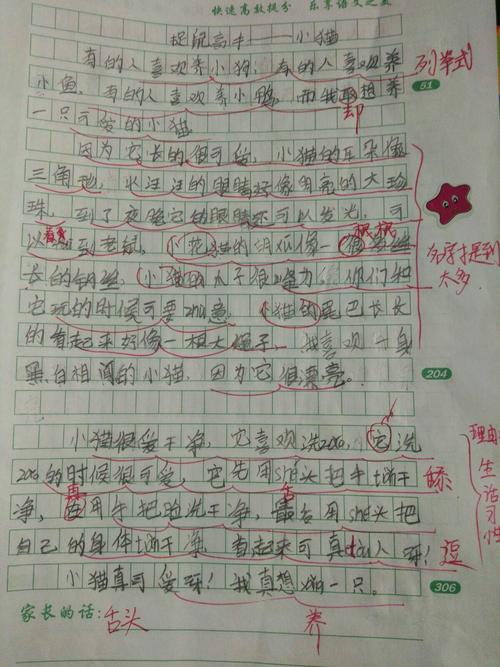 快速高效提分 乐享语文之美
捉鼠高手——小猫
有的人喜欢养小狗，有的人喜欢养 列举式
小鱼，有的人喜欢养小鸭，而我却想养 51
一只可爱的小猫
因为它长的很可爱，小猫的耳朵像
三角地，水汪汪的眼睛好像明亮的大珍
珠，到了夜晚它的眼睛还可以发光，可
以看见到老鼠，小花猫的胡须像一根根
长的钢丝，小猫的 子很 你们和 名字提到太多
它玩的时候可要zhù意，小猫的尾巴长长
的看起来好像一根大绳子，我喜欢一身
黑白相间的小猫，因为它很漂亮。 204
小猫很爱干净，它喜欢洗zǎo，它洗
zǎo的时候很可爱，它先用shé头把手tiǎn干 舔
净，再用手把脸洗干净，最后用shé头把 舌
自己的身体tiǎn干净，看起来可真dòu人呀！ 逗
理由：生活习性
小猫真可爱呀！我真想 一只。 306
家长的话：舌头 养